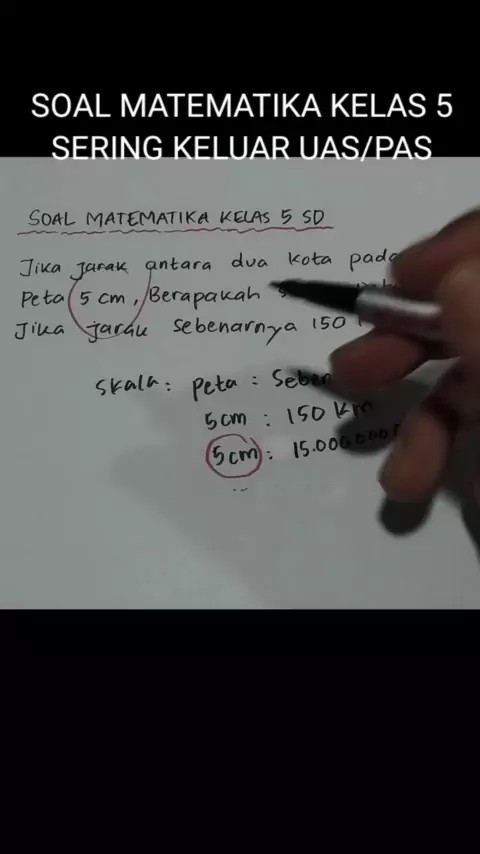 SOAL MATEMATIKA KELAS 5
SERING KELUAR UAS/PAS
SOAL MATEMATIKA KELAS 5 SD
Jika jarak antara dua kota pada
Peta 5 cm, Berapakah
Jika jarak sebenarnya 150
Skala : Peta :
5cm : 150 km
5cm : 15.000.000
...